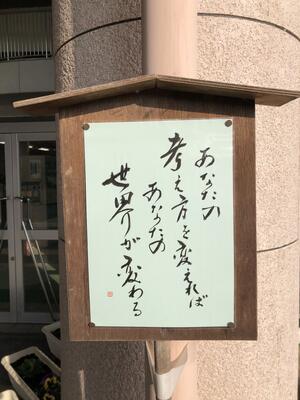 あなたの
考え方を変えれば
あなたの
世界が変わる